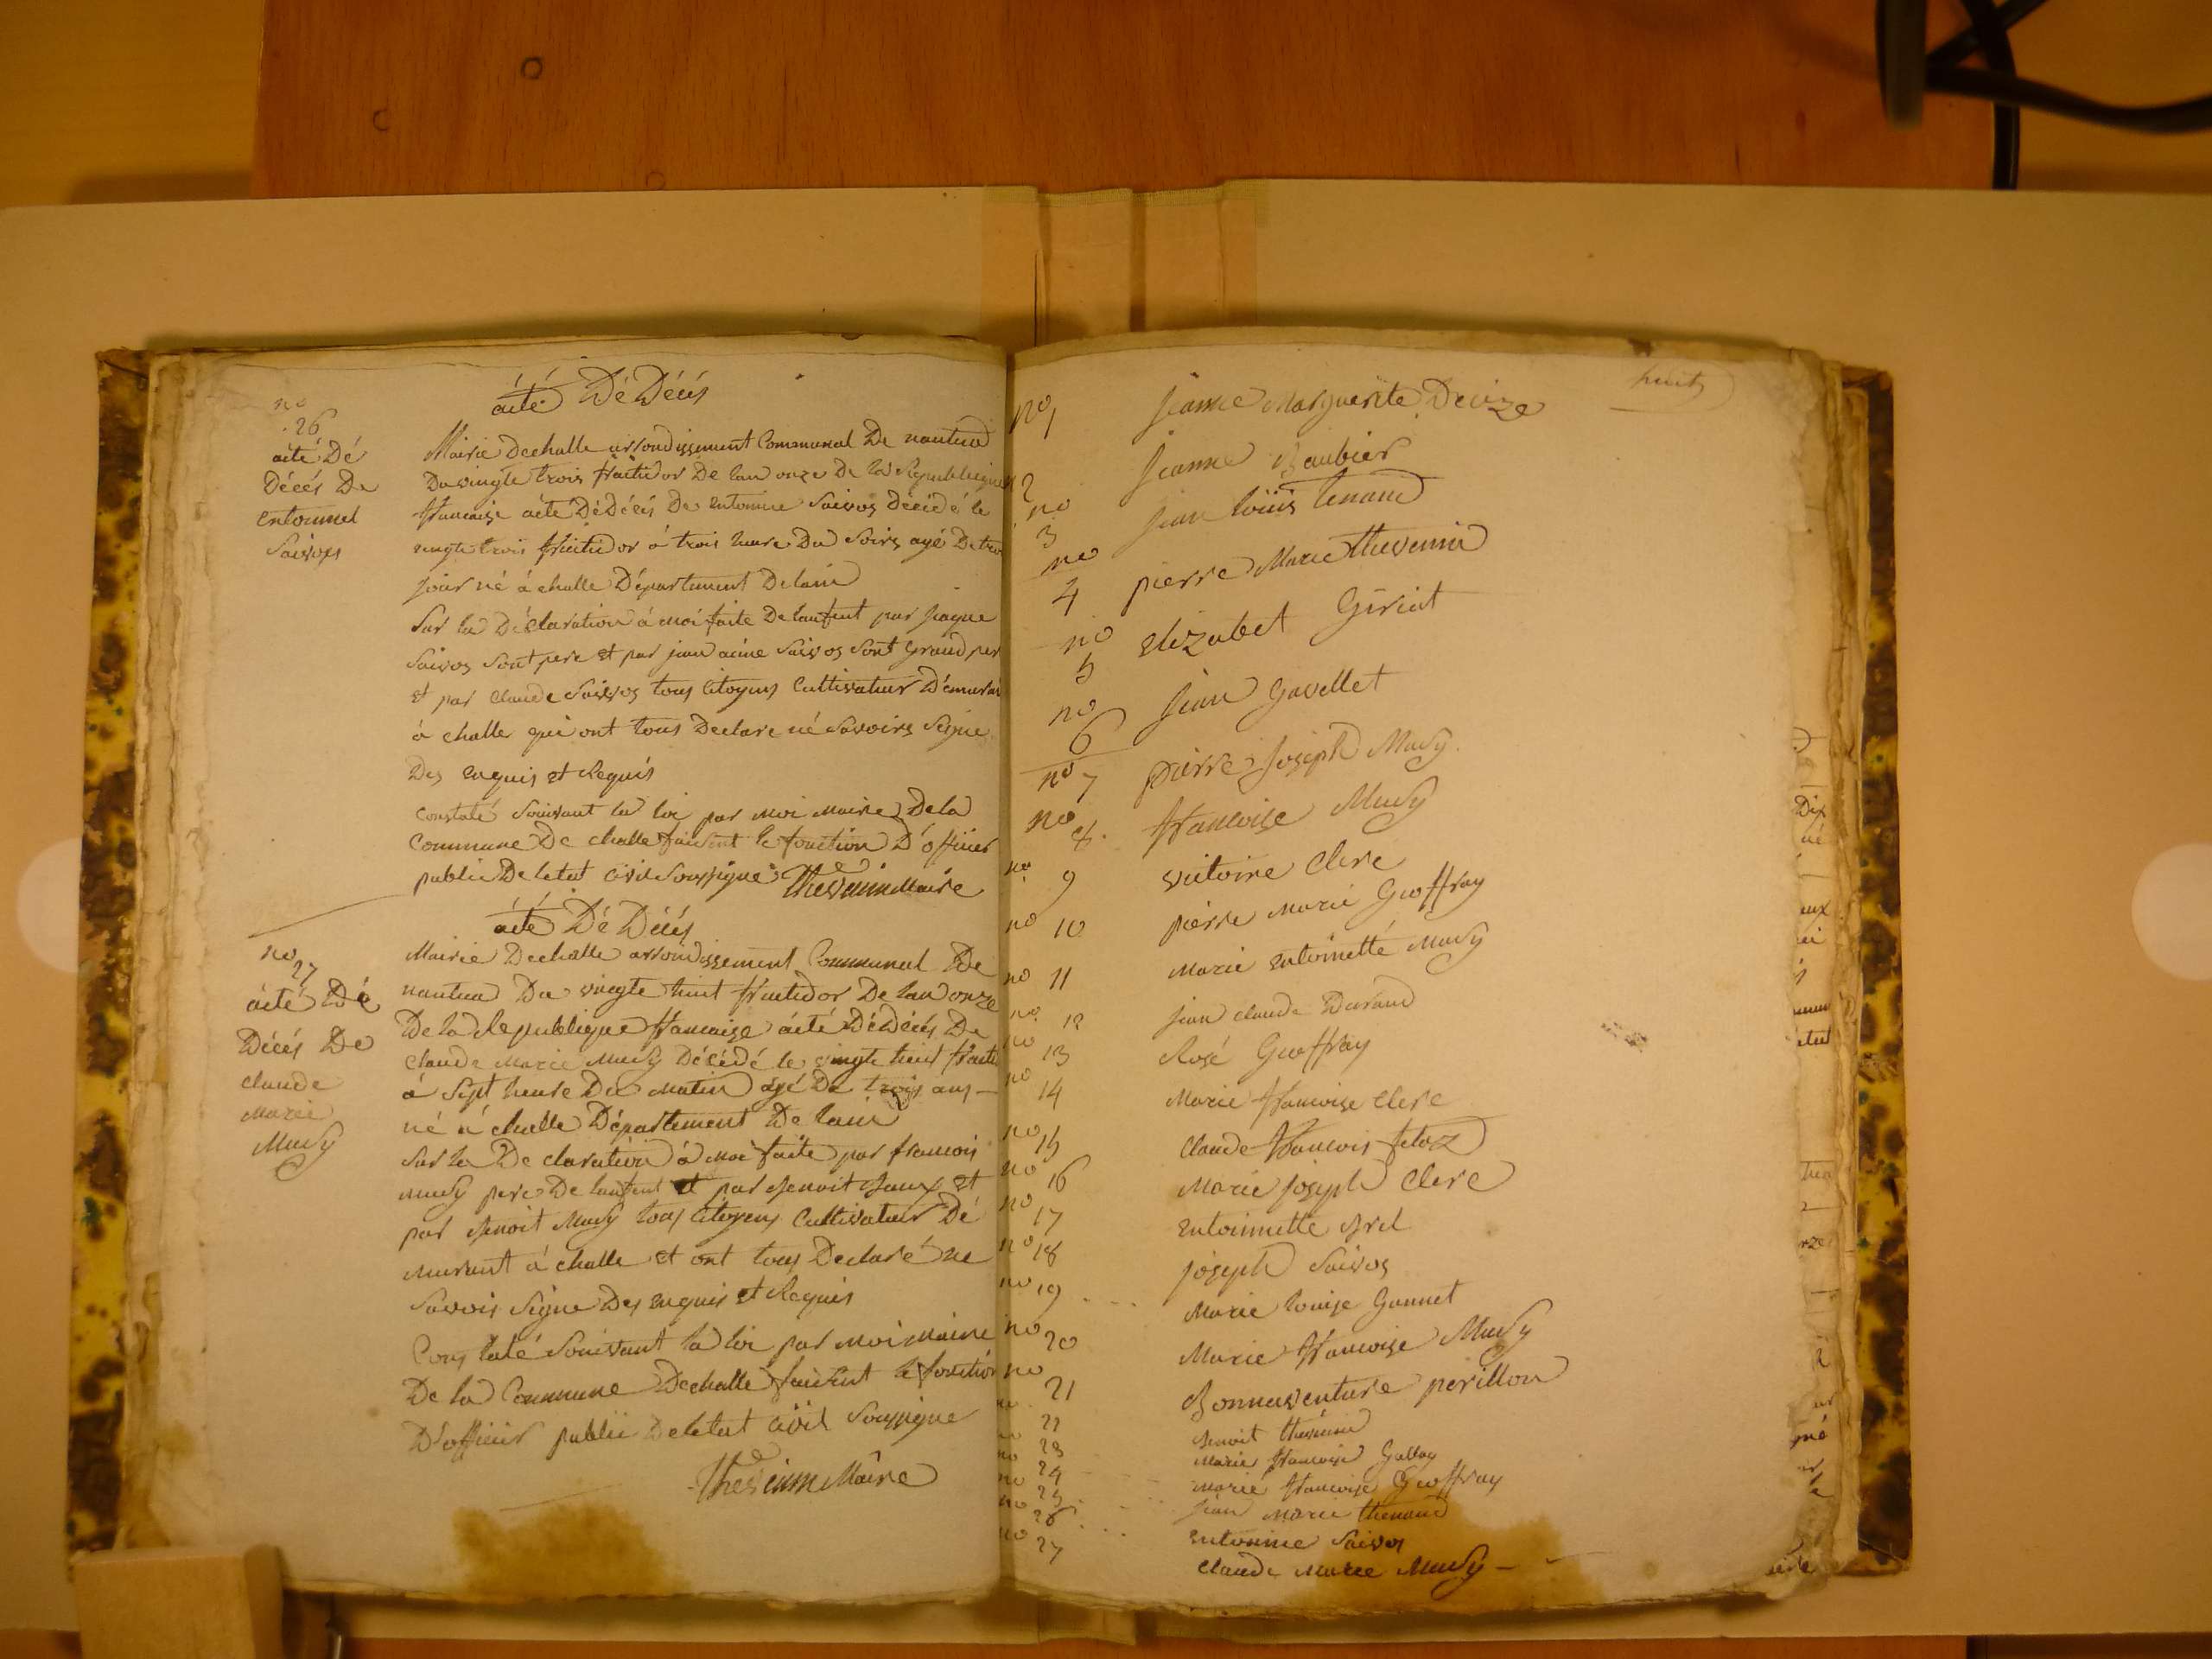 no
26
acté Dé
Décés De
entoinnel
Saivos
ácté DéDécés
Mairie Dechalle arrondissement Communal De nantua
Du vingte trois fructidor De lan onze De la Republieque
francaise acté DéDécés De entoinne Saivos décédé le
vingte trois fructidor á trois heure Du Soirs agé De troi
jour né á challe Département Delain
Sur la Déclaration á moi faite De lanfent par jaque
Saivos Sont pere et par jean aime Saivos Sont grand per
et par claude Saivos tous Citoyens Cultivateur Démurant
á challe qui ont tous Declare né Savoirs Signe
Des enquis et Requis
Constaté Souivant la loi par moi maire Dela
Commune De challe faisent le fonction D'officier
public De letat Civil Soussigné Thevenin Maire
no
27
ácté Dé
Décés De
claude
Marie
Mudy
ácté Dé Décés
Mairie Dechalle arrondissement Communal De
nantua Du vingte huit fructidor De lan onze
De la Republieque francaise ácté DéDécés De
Claude Marie Mudy Décédé le vingte huit fructi
á Sept heure Du Matin agé De trois ans
né á challe Département De lain
Sur la Declaration á moi faite par francois
Mudy pere De lanfent et par Benoit et
par Benoit Mudy tous Citoyens Cultivateur Dé
murant á challe et ont tous Declaré ne
Savoir Signe Des enquis et Requis
Constaté Souivant la loi par moi Maire
De la Commune Dechalle faisent le fonction
D'officier public De letat Civil Soussigne
Thevenin Maire
huit
no 1 jeanne Marguerite Decize
2 jeanne Baubier
no 3 jean louis tenand
no 4 pierre Marie thevenin
no 5 elizabet Giriat
no 6 jean Gavellet
no 7 pierre joseph Mudy
no 8 francoise Mudy
no 9 victoire Clerc
no 10 pierre marie Geoffray
no 11 Marie entoinetté Mudy
no 12 jean claude Durand
no 13 Rosé Geoffray
no 14 Marie francoise clerc
no 15 claude francois
no 16 Marie joseph Clerc
no 17 entoinnette Brel
no 18 joseph Saivos
no 19 Marie louise Gonnet
no 20 Marie francoise Mudy
no 21 Bonnaventure perillon
no 22 Benoit thevenin
no 23 Marie francoise Gallay
no 24 Marie francoise Geoffray
no 25 jean Marie thenand
no 26 entoinne Saivos
no 27 claude Marie Mudy